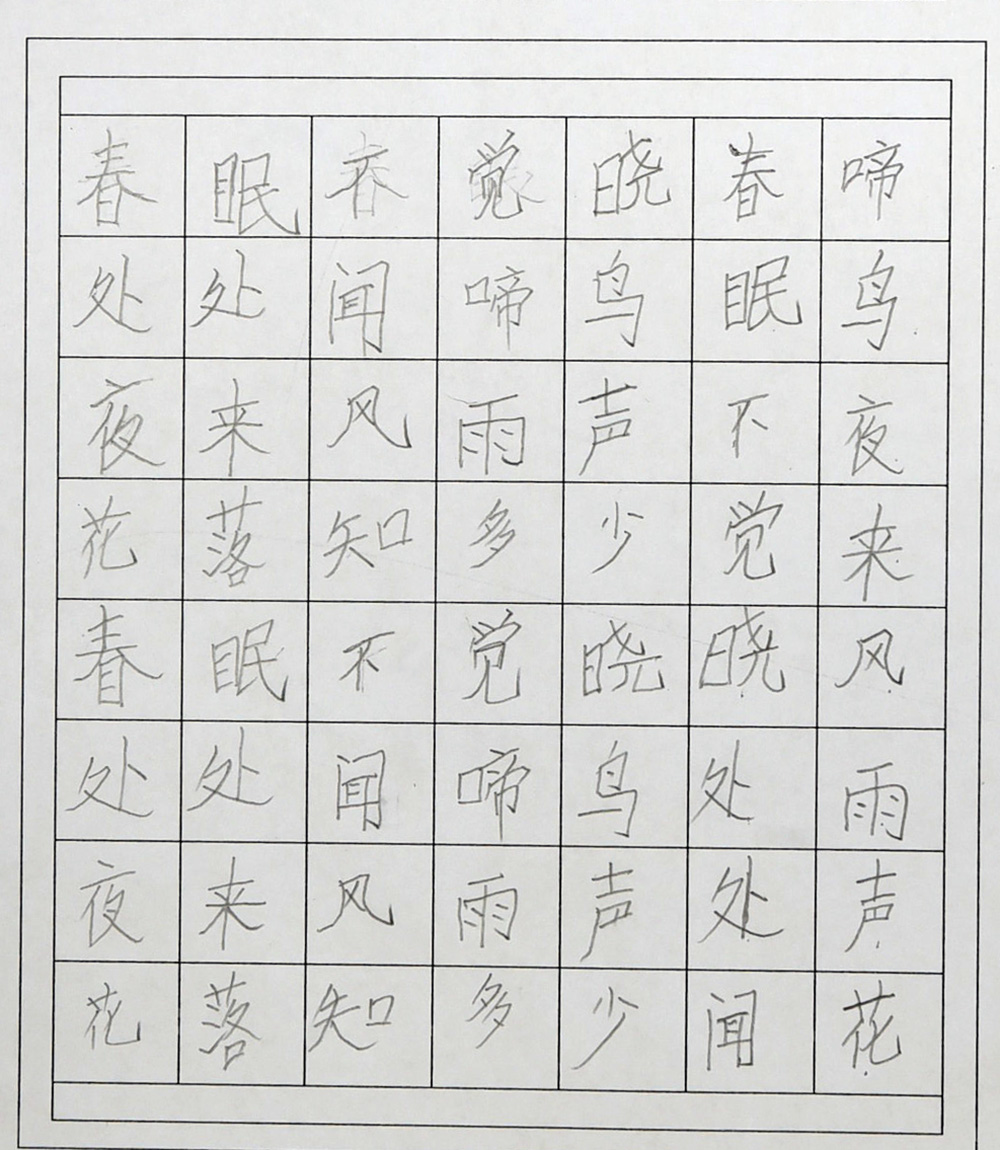 春眠春觉晓春啼
处处闻啼鸟眠鸟
夜来风雨声不夜
花落知多少觉来
春眠不觉晓晓风
处处闻啼鸟处雨
夜来风雨声处声
花落知多少闻花